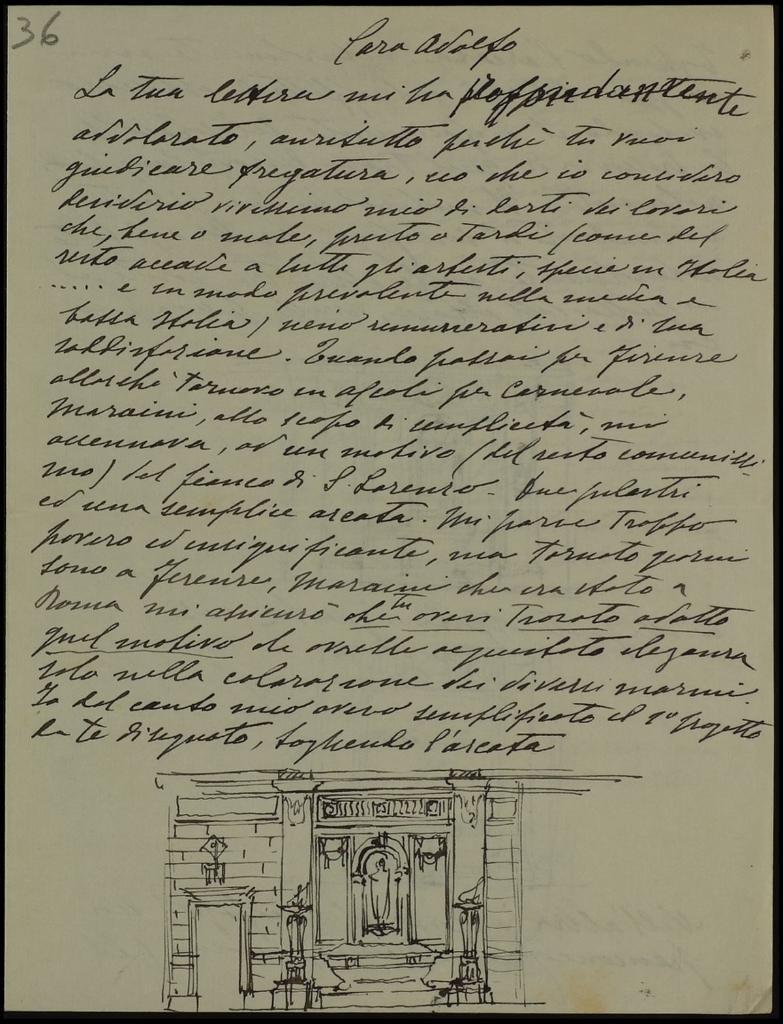 36
Caro Adolfo
La tua lettera mi ha
addolorato, anzitutto perchè tu vuoi
giudicare fregatura, ciò che io considero
desiderio vivissimo mio di darti dei lavori
che, bene o male, presto o tardi (come del
resto accade a tutti gli artisti, specie in Italia
..... e in modo prevalente nella media e
bassa Italia) sieno remunerativi e di tua
soddisfazione. Quando passai per Firenze
allorchè tornavo in Ascoli per Carnevale,
Maraini, allo scopo di semplicità, mi
accennava, ad un motivo (del resto comunissi-
mo) del fianco di S. Lorenzo - Due pilastri
ed una semplice arcata. Mi parve troppo
povero ed insignificante, ma tornato giorni
sono a Firenze, Maraini che era stato a
Roma mi assicurò che tu avevi trovato adatto
quel motivo che avrebbe acquistato eleganza
solo nella colorazione dei diversi marmi.
Io dal canto mio avevo semplificato il 1º progetto
da te disegnato, togliendo l'arcata